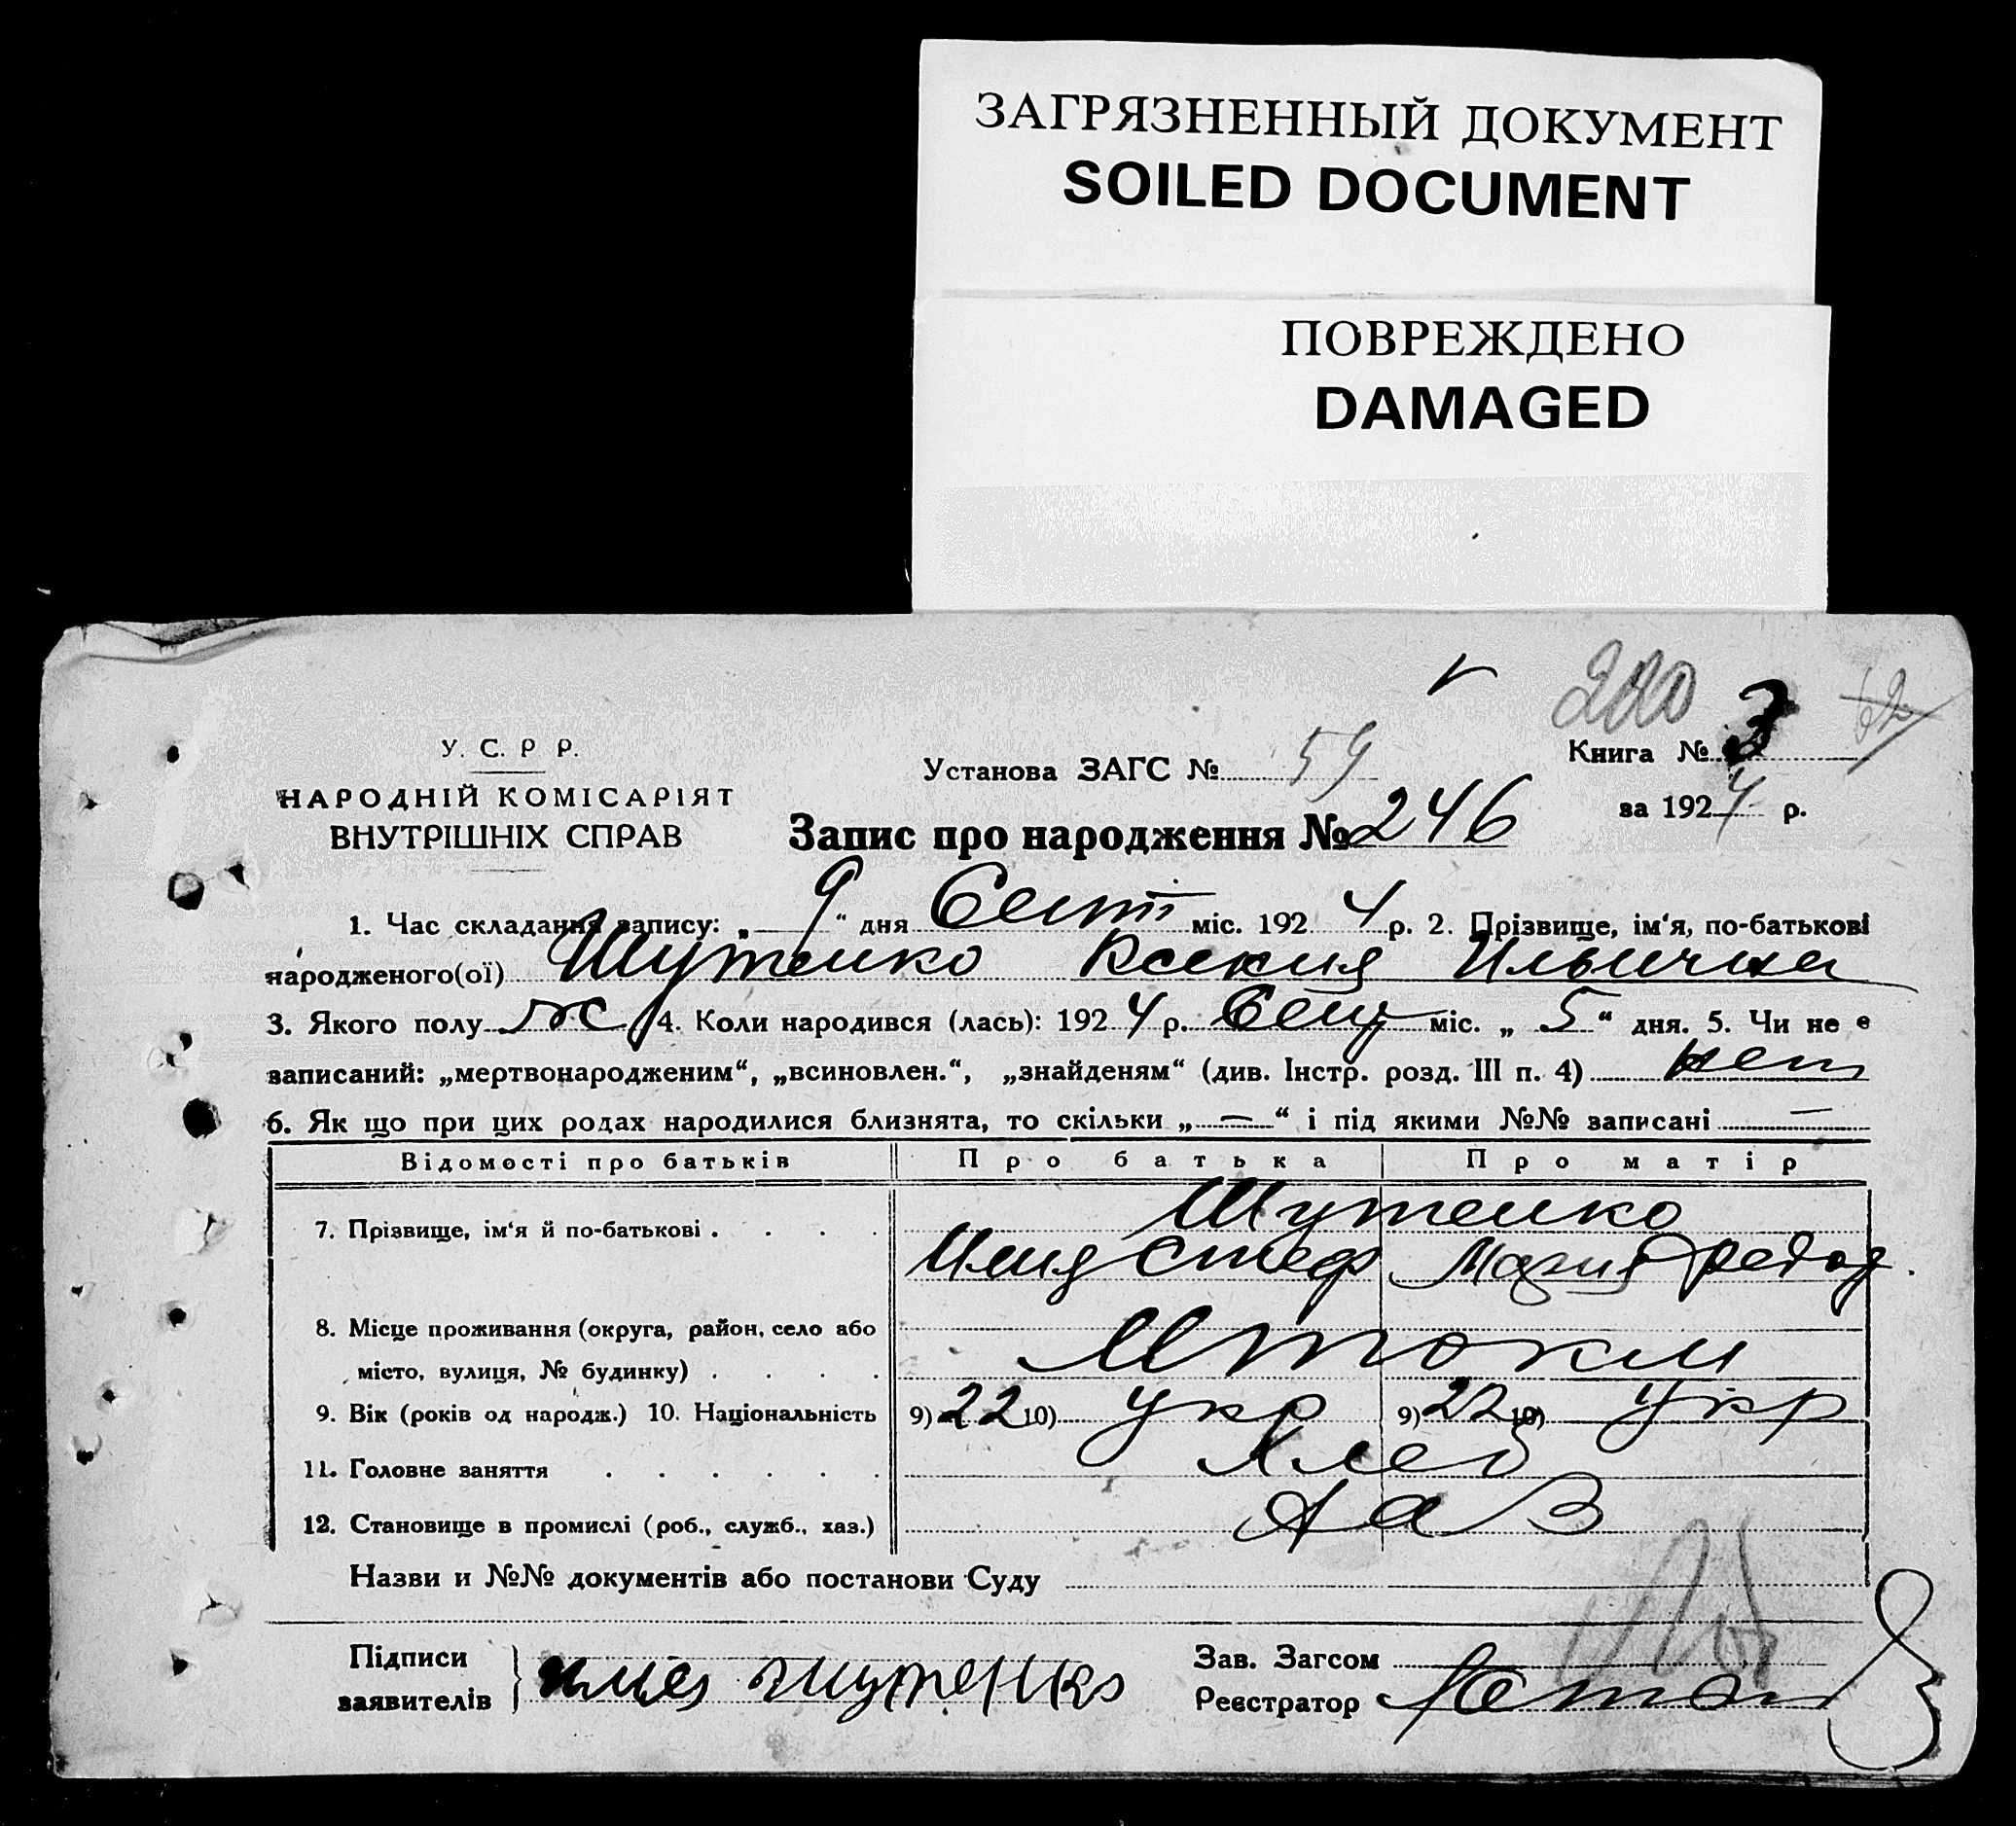 ЗАГРЯЗНЕННЫЙ ДОКУМЕНТ
SOILED DOCUMENT
ПОВРЕЖДЕНО
DAMAGED
У. С. Р Р.
НАРОДНІЙ КОМІСАРІЯТ
ВНУТРІШНІХ СПРАВ
Установа ЗАГС № 59
Книга № 3
за 1924 р.
Запис про народження № 246
1. Час складання запису: „ 9 “ дня Сент міс. 1924 р. 2. Прізвище, ім‘я, по-батькові
народженого(ої) Шутенко Ксения Ильична
3. Якого полу ж 4. Коли народився (лась): 1924 р. Сент міс. „ 5 “ дня. 5. Чи не є
записаний: „мертвонародженим“, „всиновлен.“, „знайденям“ (див. Інстр. розд. III п. 4) нет
6. Як що при цих родах народилися близнята, то скільки „ — “ і під якими №№ записані —
Відомості про батьків Про батька Про матір
7. Прізвище, ім‘я й по-батькові . . . . Шутенко
Илия Стеф Мария Федор.
8. Місце проживання (округа, район, село або
місто, вулиця, № будинку) . . . .
9. Вік (років од народж.) 10. Національність 9) 22 10) Укр 9) 22 10) Укр
11. Головне заняття . . . . . . Хлеб
12. Становище в промислі (роб., служб., хаз.)
Назви и №№ документів або постанови Суду
Підписи
заявителів Шутенко
Зав. Загсом
Реєстратор